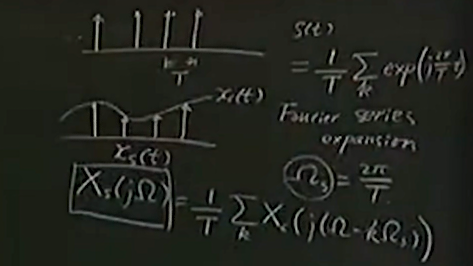 s(t)
= 1/T Σ_k exp(j 2π/T t)
T
x_c(t)
Fourier series
expansion
x_s(t)
Ω_s = 2π/T
X_s(jΩ) = 1/T Σ_k X_c(j(Ω-kΩ_s))